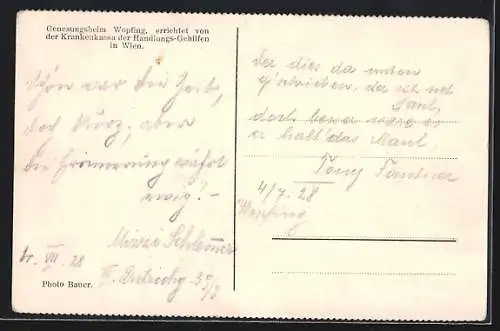 Genesungsheim Wopfing, errichtet von
der Krankenkassa der Handlungs-Gehilfen
in Wien.
Schön war die Zeit,
doch kurz, aber
die Erinnerung währt
ewig! –
Mizzi Schlemmer
VII. 28
III. 55/3
Photo Bauer.
der dies da unten
g'schrieben, der ist net
faul,
doch besser wäre es
er halt' das Maul.
Tony
4/7. 28
Wopfing